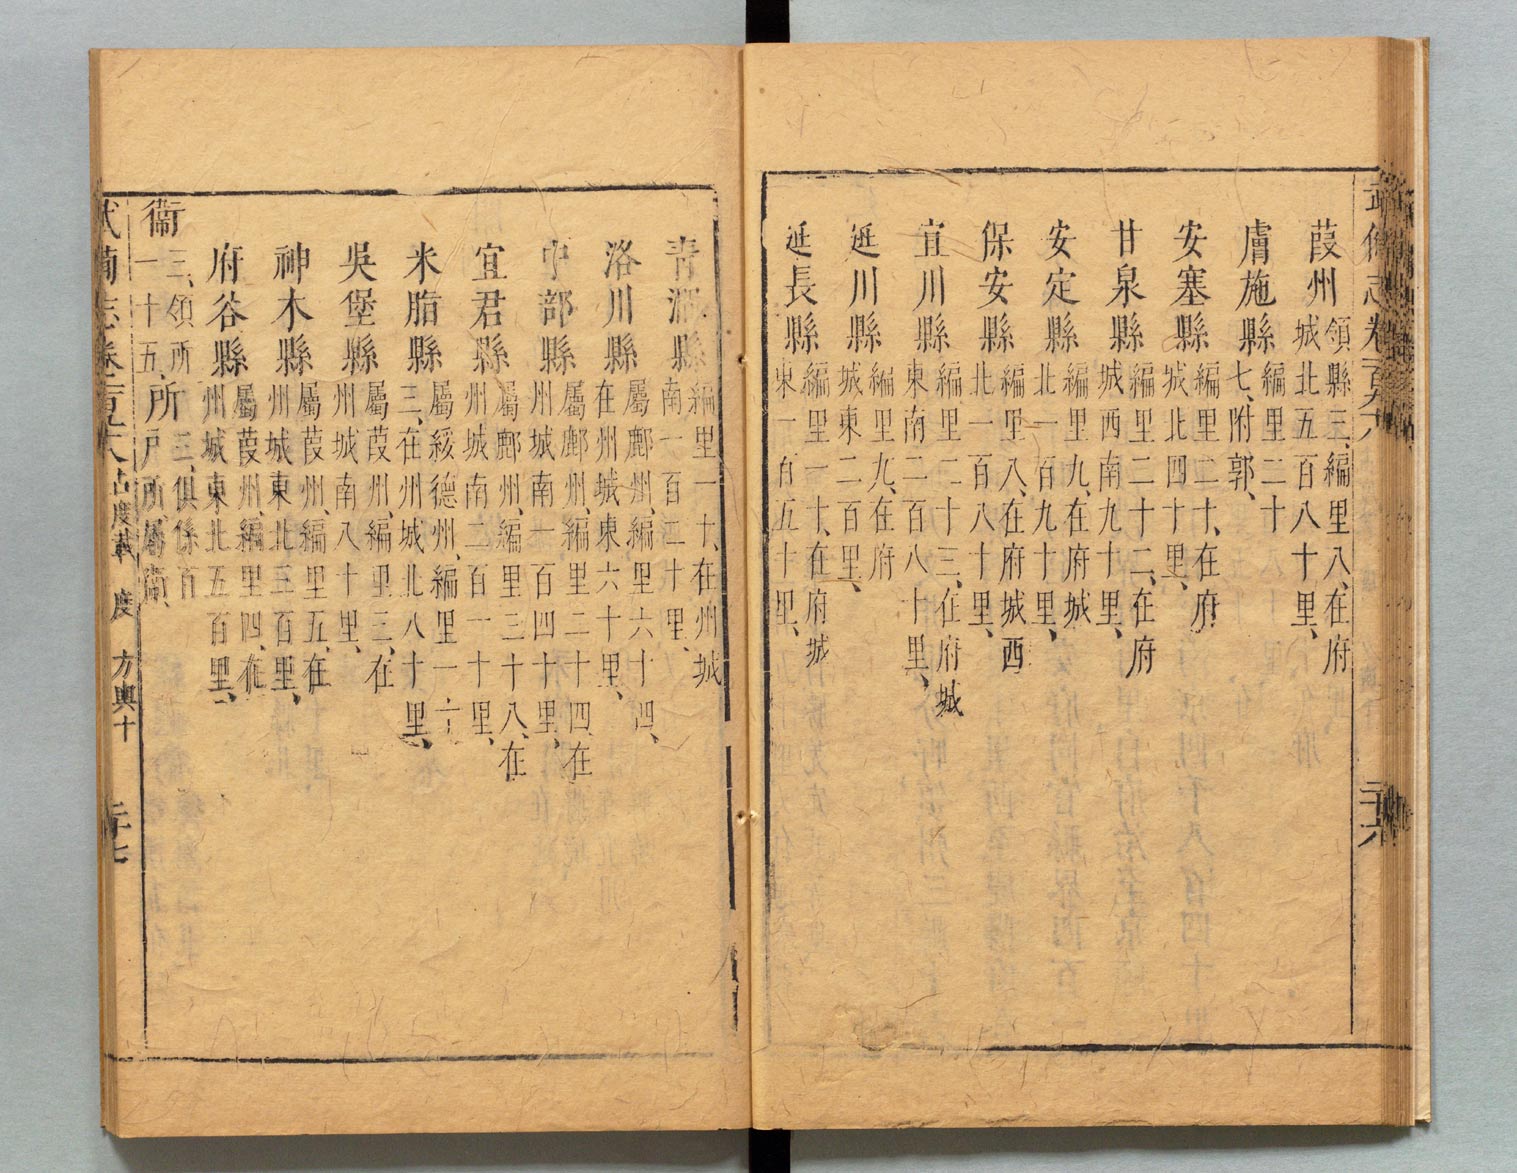 武備志卷二百六
二十六
葭州領縣三、編里八、在府城北五百八十里、
膚施縣編里二十七、附郭、
安塞縣編里二十、在府城北四十里、
甘泉縣編里二十二、在府城西南九十里、
安定縣編里九、在府城北一百九十里、
保安縣編里八、在府城西北一百八十里、
宜川縣編里二十三、在府城東南二百八十里、
延川縣編里九、在府城東二百里、
延長縣編里一十、在府城東一百五十里、
青澗縣編里一十、在州城南一百二十里、
洛川縣屬鄜州、編里六十四、在州城東六十里、
中部縣屬鄜州、編里二十四、在州城南一百四十里、
宜君縣屬鄜州、編里三十八、在州城南二百一十里、
米脂縣屬綏德州、編里一十三、在州城北八十里、
吳堡縣屬葭州、編里三、在州城南八十里、
神木縣屬葭州、編里五、在州城東北三百里、
府谷縣屬葭州、編里四、在州城東北五百里、
衞三、領所一十五、所三、俱係百戶所屬衞、
武備志卷二百六 占度載 度 方輿十 二十七